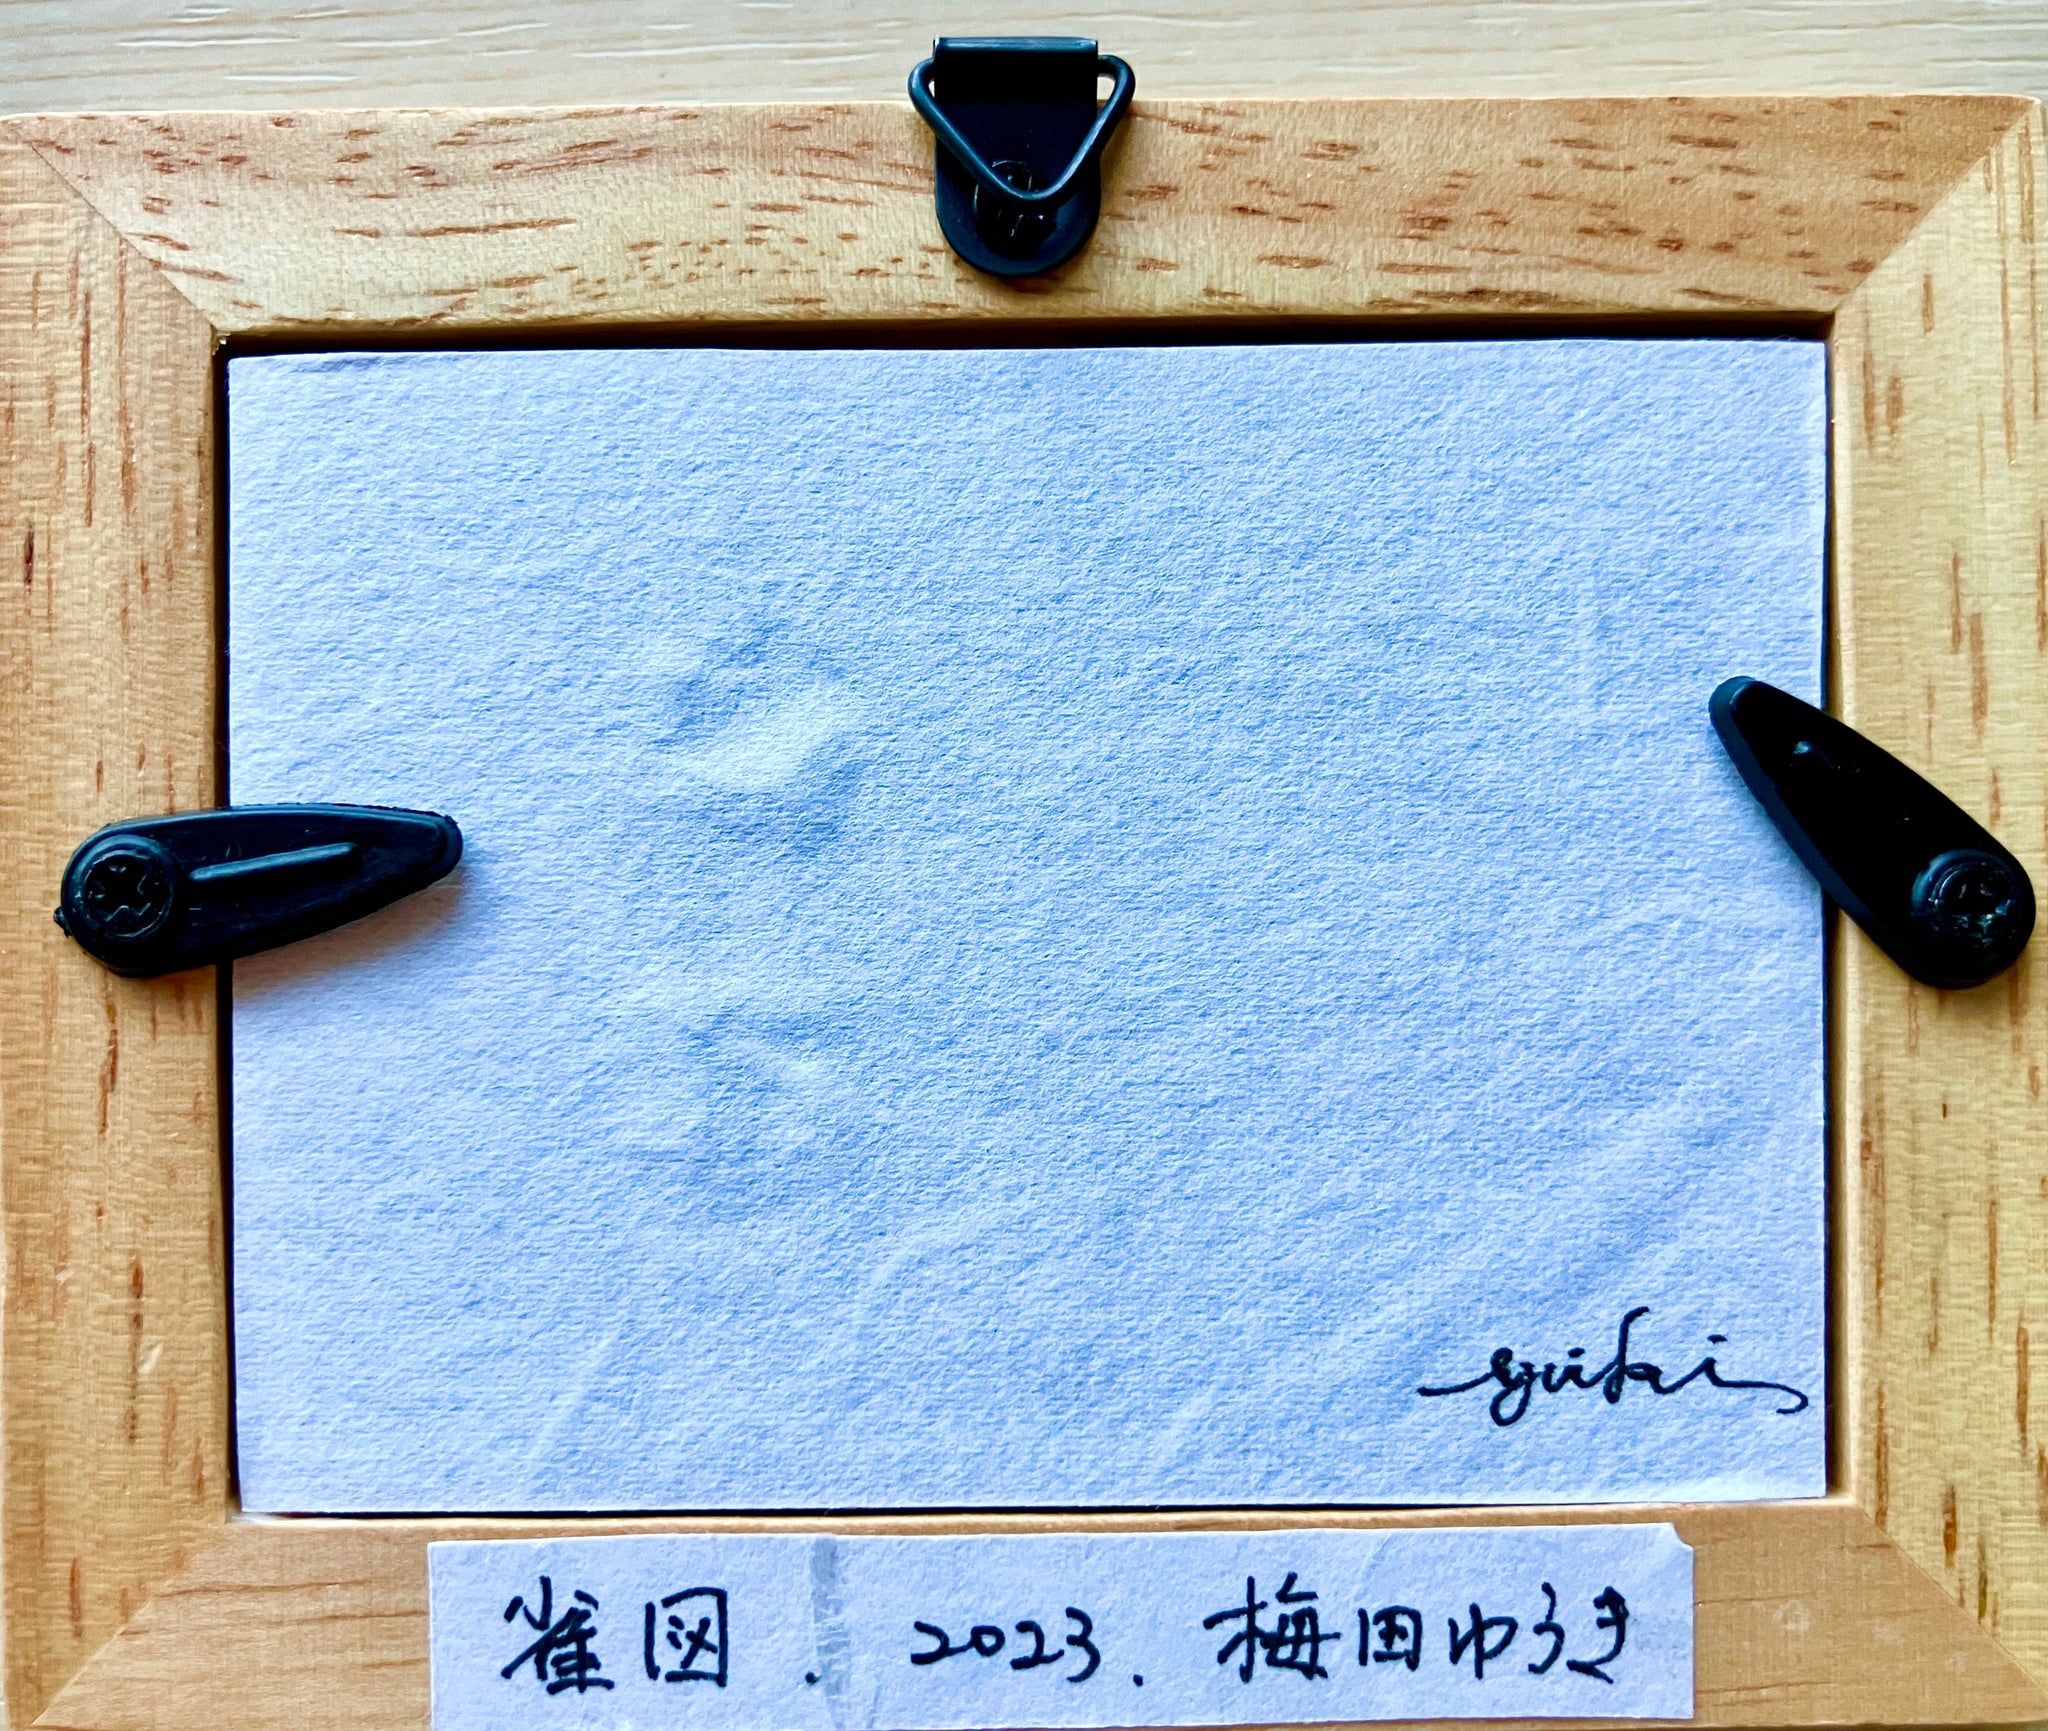 雀図.2023.梅田ゆうき